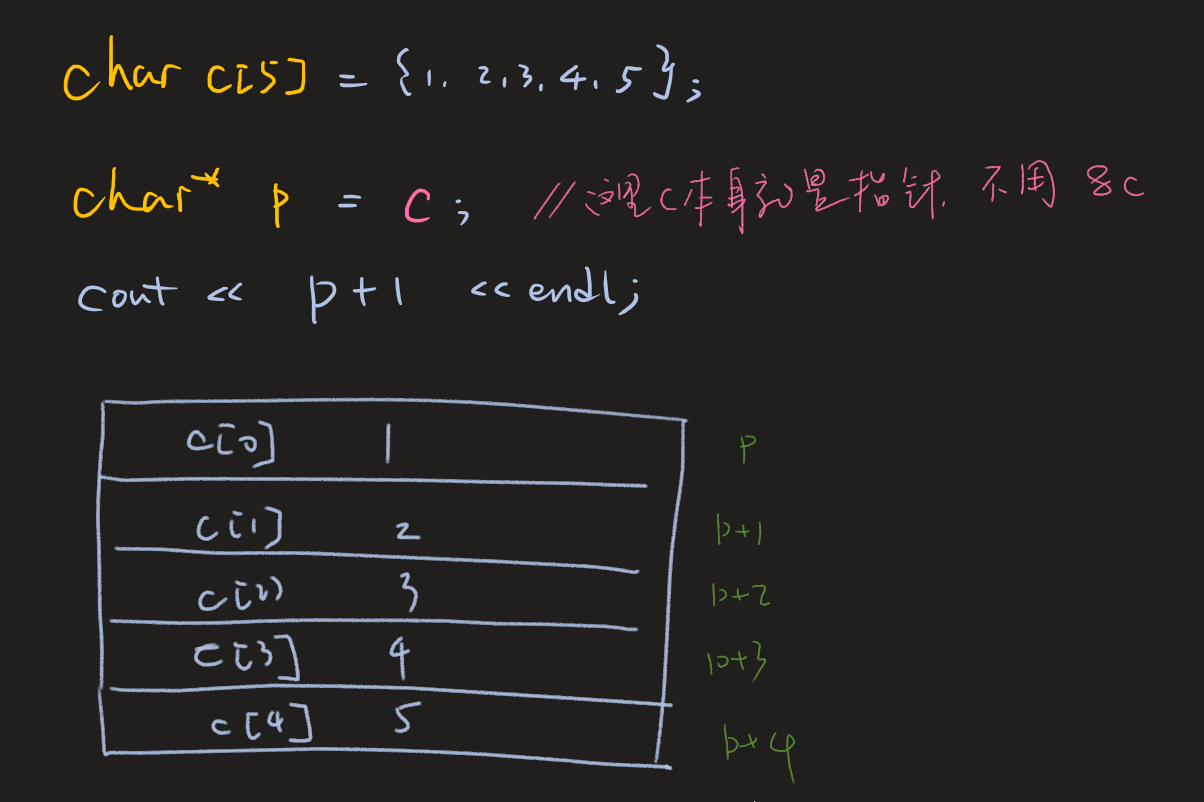 char c[5] = {1, 2, 3, 4, 5};
char* p = c; //这里c本身就是指针，不用 &c
cout << p+1 << endl;
c[0] 1 p
c[1] 2 p+1
c[2] 3 p+2
c[3] 4 p+3
c[4] 5 p+4